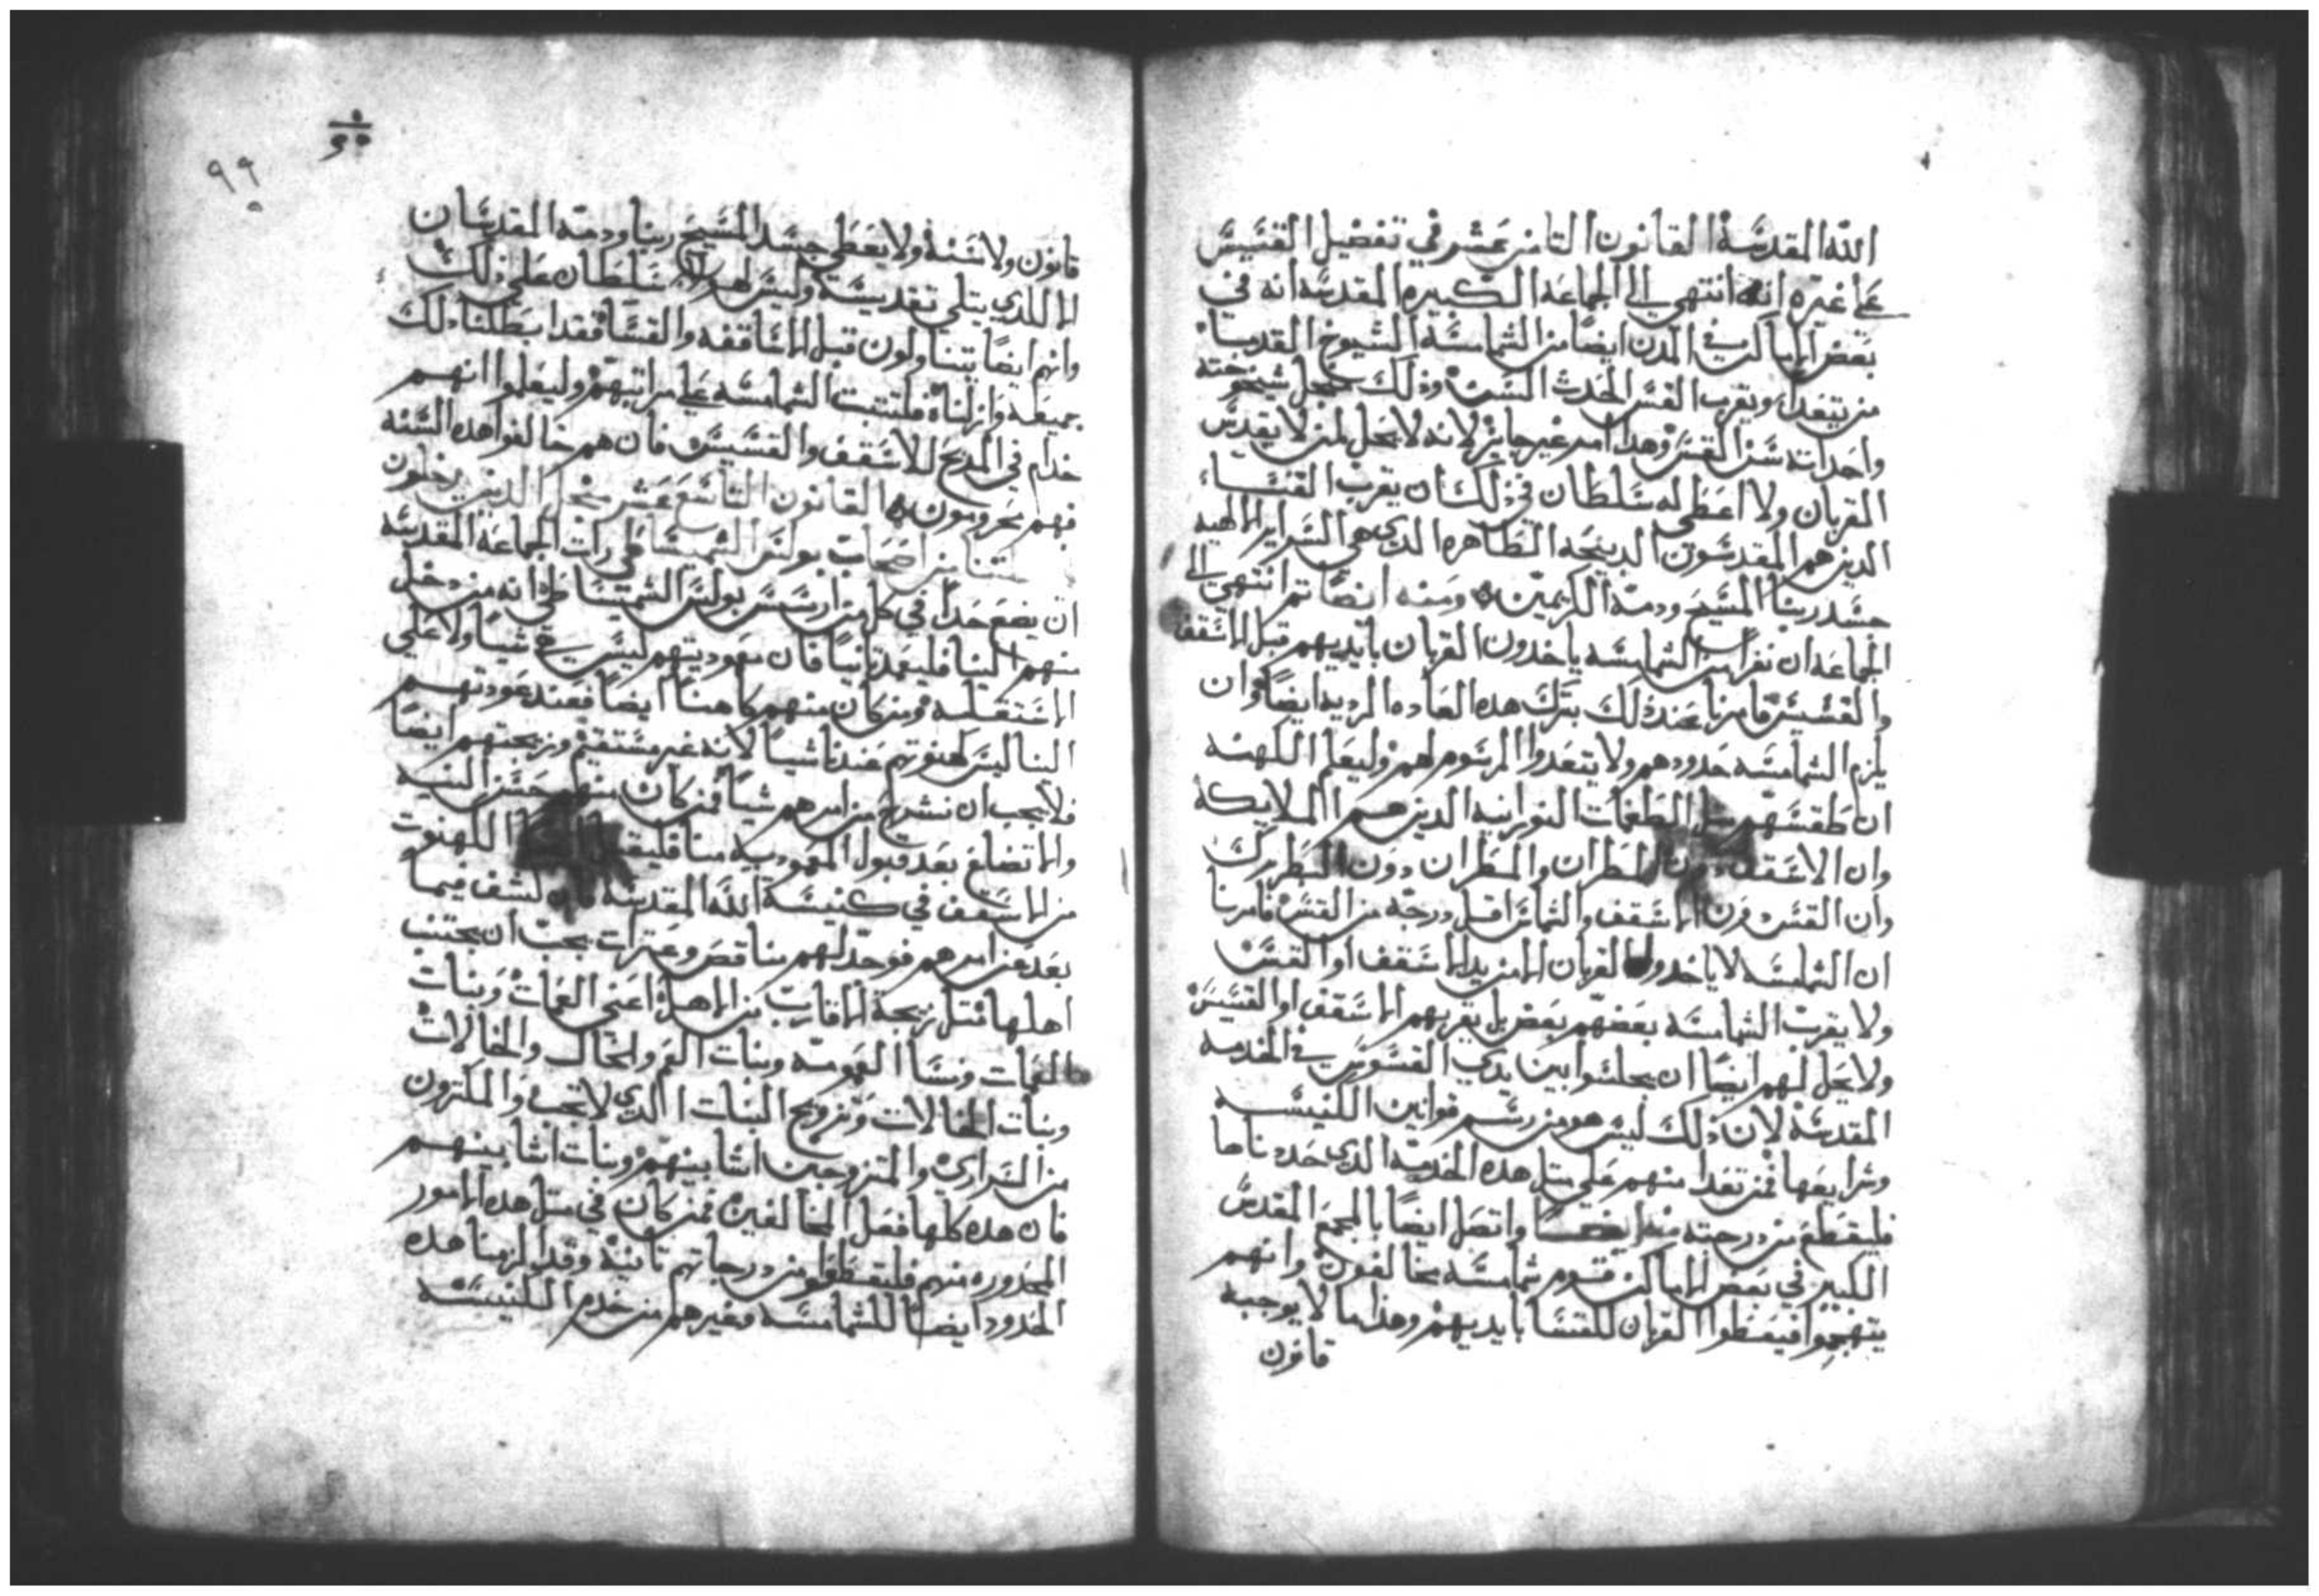 الله المقدسة القانون الثامن عشر في تفضيل القسيس
على غيره انه انتهي الى الجماعة الكبيره المقدسه انه في
بعض الاماكن في المدن ايضا من الشمامسة الشيوخ القدما
من يتعدا ويقرب القس الحدث السن وذلك شيخوخته
واحداثه سن القس وهدا امر غير جايز لانه لا يحل لمن لا يقدس
القربان ولا اعطي له سلطان في ذلك ان يقرب القسا
الدين هم المقدسون الدبيحه الطاهره الدي هي السراير الالهيه
جسد ربنا المسيح ودمه الكريمين ومنه ايضا تم انتهي الى
الجماعه ان نفرا من الشمامسه ياخدون القربان بايديهم قبل الاسقف
والقسيس فامرنا عند ذلك بترك هده العاده الرديه ايضا وان
يلزم الشمامسه حدودهم ولا يتعدوا المرسوم لهم وليعلم الكهنه
ان طقسهم مثل الطغمات النورانيه الدين هم الملايكه
وان الاسقف دون المطران والمطران دون البطرك
وان القس دون الاسقف والشماس اقل درجه من القس فامرنا
ان الشمامسه لا ياخدوا القربان الا من يد الاسقف او القس
ولا يقرب الشمامسه بعضهم بعض بل يقربهم الاسقف او القسيس
ولا يحل لهم ايضا ان يجلسوا بين يدي القسوس في الخدمه
المقدسه لان ذلك ليس هو من رسم قوانين الكنيسه
وشرايعها فمن تعدا منهم على مثل هده الخدمه الدي حددناها
فليقطع من درجته منه ايضا واتصل ايضا بالمجمع المقدس
الكبير في بعض الاماكن قسوم شمامسه يخالفون وانهم
يتهجموا فيعطوا القربان للقسا بايديهم وهذا ما لا يوجبه
قانون
٩٩
قانون ولا سنة ولا يعطى جسد المسيح ربنا ودمه المقدسان
الا للدي يتلي تقديسه وليس لهولاي سلطان على ذلك
وانهم ايضا يتناولون قبل الاساقفه والقسا فقد ابطلنا ذلك
جميعه وازلناه فلتتبت الشمامسه على مراتبهم وليعلموا انهم
خدام في المدبح للاسقف والقسيس فان هم خالفوا هده السنه
فهم محرومون القانون التاسع عشر من اجل الدين يدخلون
من اصحاب بولس الشميشاطي رات الجماعه المقدسه
ان يضع حدا في كل من ارسس بولس الشميشاطي انه من دخل
منهم الينا فليعمد ثانيا فان معموديتهم ليس في شيا ولا على
الاستقامه ومن كان منهم كاهنا ايضا فعند عودتهم
الينا ليس كهنوتهم عندنا شيا لانه غير مستقيم وزيجتهم ايضا
فلا يجب ان نشرح من امرهم شيا فمن كان منهم حسن النيه
والاتضاع بعد قبول المعموديه منا فليقبل الكهنوت
من الاسقف في كنيسة الله المقدسه فان كشف فيما
بعد عن امرهم فوجد لهم مناقص وعترات يجب ان يجتنب
اهلها مثل زيجة الاقارب من الاهل اعني العمات وبنات
العمات ونسا العمومه وبنات العم والخال والخالات
وبنات الخالات وتزويج البنات الدي لا تجب والمكترون
من السراري والمتزوجين انسابينهم وبنات انسابينهم
فان هده كلها فعل المخالفين فمن كان في مثل هده الامور
المحدوره منهم فليقطعوا من درجاتهم ثانية وقد الزمنا هده
الحدود ايضا للشمامسه وغيرهم من خدم الكنيسه